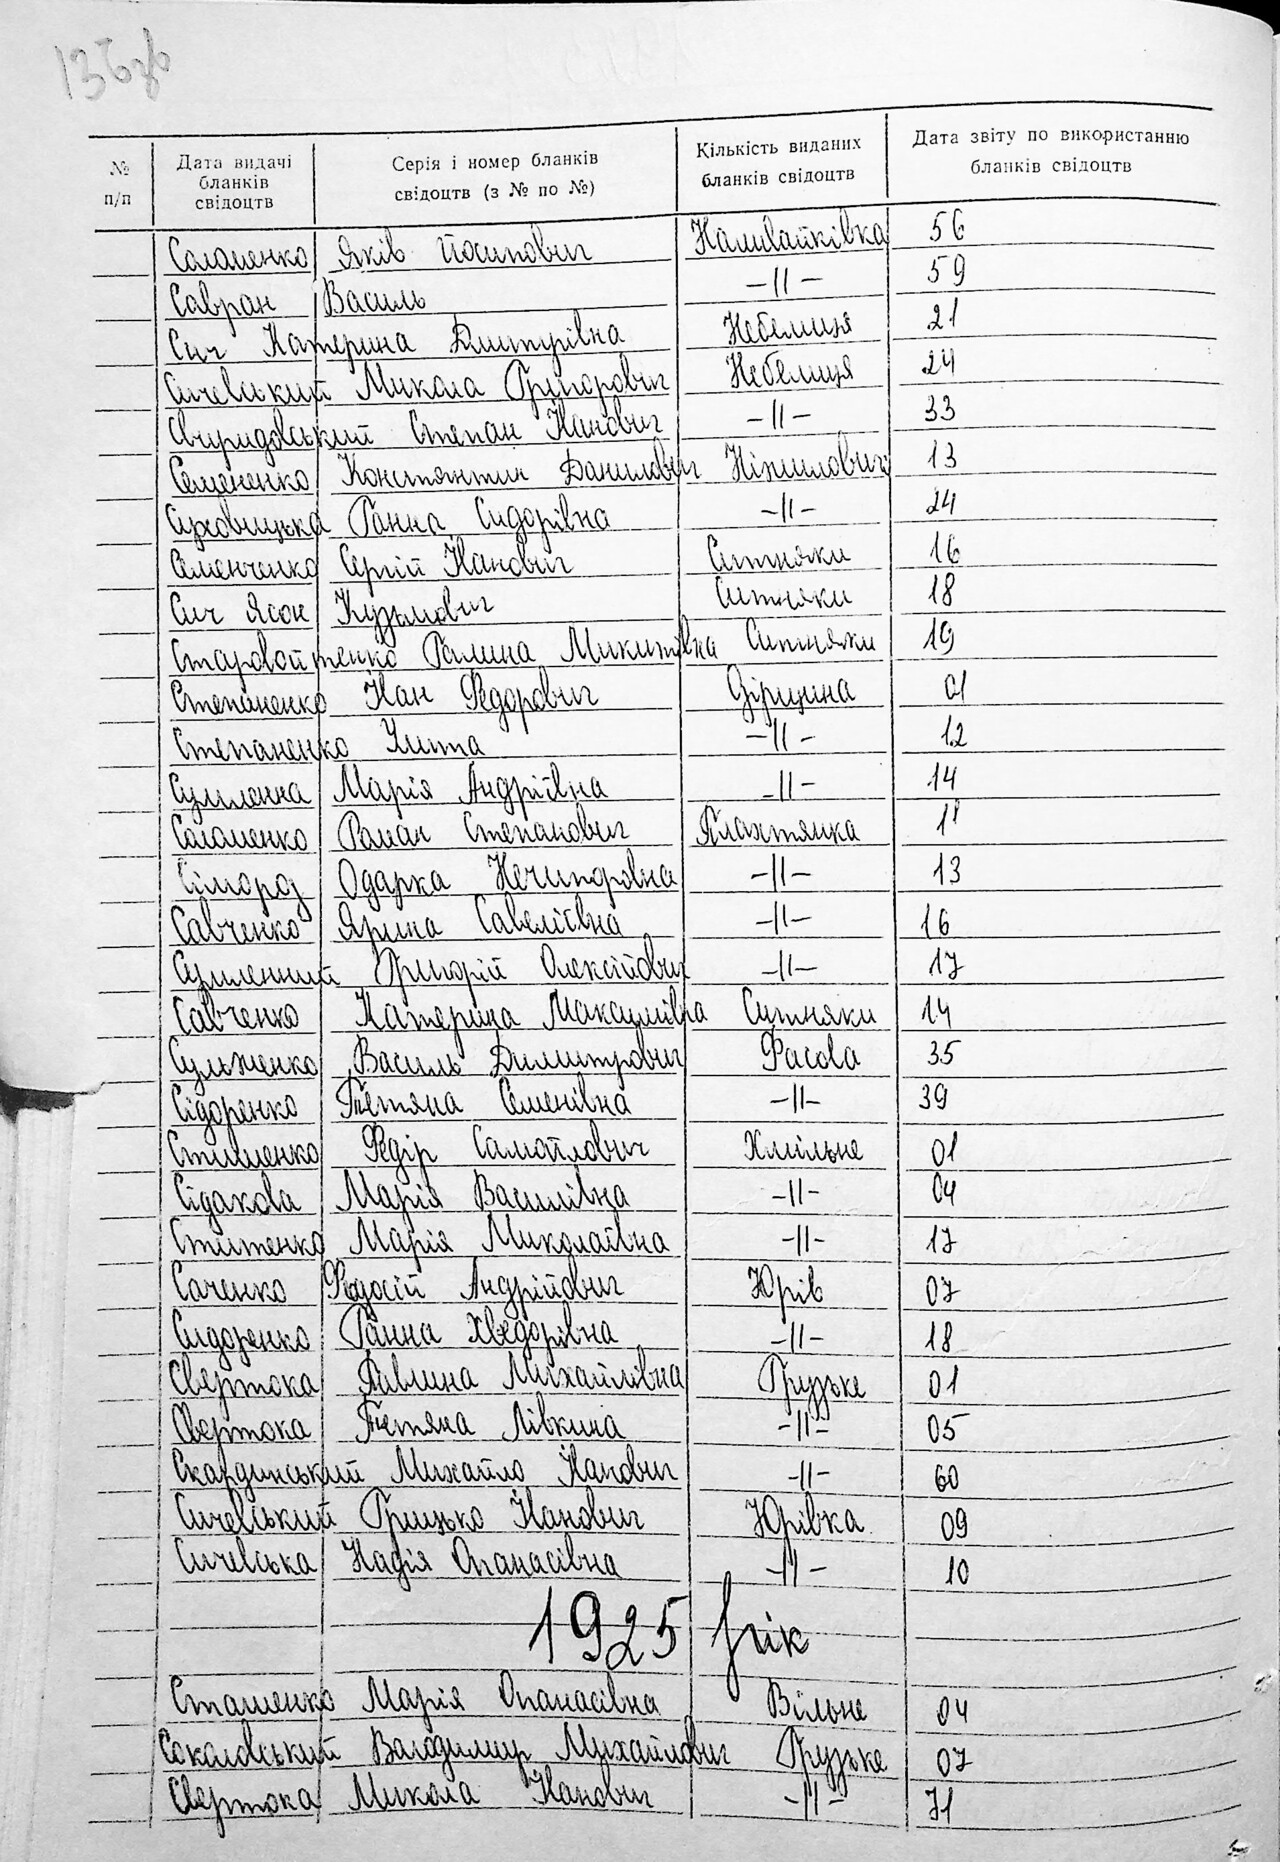 136зв
№ п/п
Дата видачі бланків свідоцтв
Серія і номер бланків свідоцтв (з № по №)
Кількість виданих бланків свідоцтв
Дата звіту по використанню бланків свідоцтв
Соломенко Яків Йосипович Наливайківка 56
Савран Василь -//- 59
Сич Катерина Дмитрівна Небелиця 21
Сичевський Микола Григорович Небелиця 24
Свиридовський Степан Іванович -//- 33
Семененко Констянтин Данилович 13
Ганна Сидорівна -//- 24
Семенченко Сергій Іванович Ситняки 16
Сич Ясон Кузьмович Ситняки 18
Старовойтенко Галина Микитівна Ситняки 19
Степаненко Іван Федорович 01
Степаненко Улита -//- 12
Марія Андріївна -//- 14
Соломенко Роман Степанович Плахтянка 11
Сімороз Одарка Нечипорівна -//- 13
Савченко Ярина Савеліївна -//- 16
Сумленний Григорій Олексійович -//- 17
Савченко Катерина Максимівна Ситняки 14
Сульженко Василь Димитрович Фасова 35
Сідоренко Тетяна Семенівна -//- 39
Федір Самойлович Хмільне 01
Сідакова Марія Василівна -//- 04
Марія Миколаївна -//- 17
Саченко Федосій Андрійович Юрів 07
Сидоренко Ганна Хведорівна -//- 18
Свертока Павлина Михайлівна Грузьке 01
Свертока Тетяна Лівкина -//- 05
Скардинський Михайло Іванович -//- 60
Сичевський Грицько Іванович Юрівка 09
Сичевська Надія Опанасівна -//- 10
1925 рік
Сташенко Марія Опанасівна Вільне 04
Соколовський Володимир Михайлович Грузьке 07
Свертока Микола Іванович -//- 71